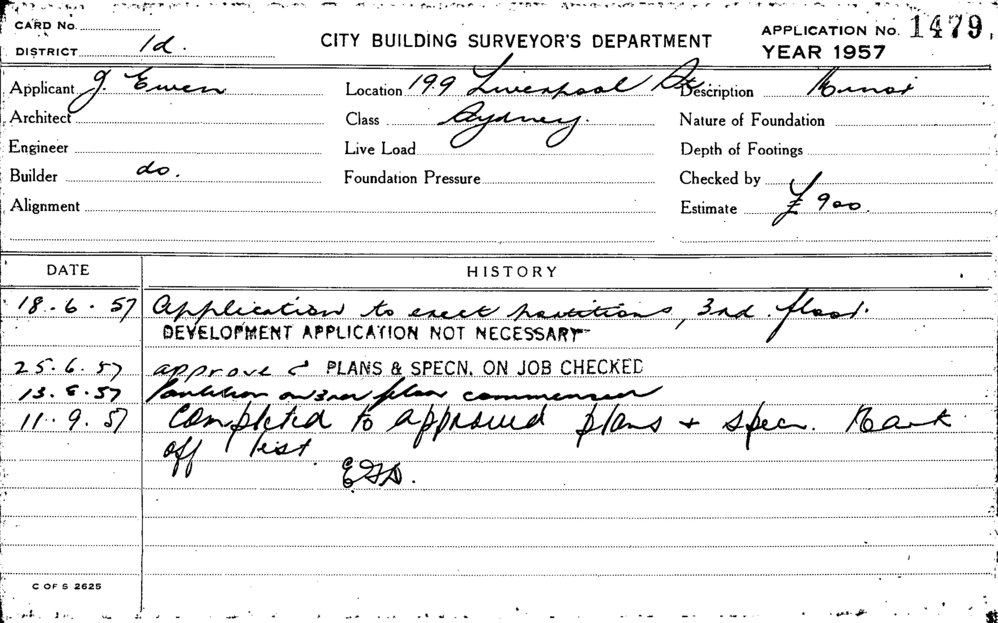 CARD No.
DISTRICT 1d.
CITY BUILDING SURVEYOR'S DEPARTMENT
APPLICATION No. 1479.
YEAR 1957
Applicant J. Ewen
Location 199 Liverpool St.
Description Minor
Architect
Class Sydney.
Nature of Foundation
Engineer
Live Load
Depth of Footings
Builder do.
Foundation Pressure
Checked by
Alignment
Estimate £ 900.
DATE HISTORY
18.6.57 Application to erect partitions, 3rd floor.
DEVELOPMENT APPLICATION NOT NECESSARY
25.6.57 approved PLANS & SPECN. ON JOB CHECKED
13.8.57 Partition on 3rd floor commenced
11.9.57 Completed to approved plans & specn. Mark
off list.
C OF S 2625